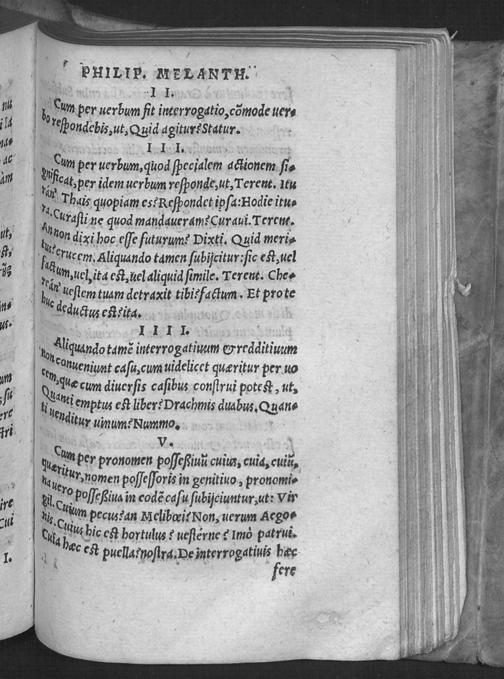 PHILIP. MELANTH.
I I.
Cum per uerbum fit interrogatio, cõmode uer-
bo respondebis, ut, Quid agitur? Statur.
I I I.
Cum per uerbum, quod specialem actionem si-
gnificat, per idem uerbum responde, ut, Terent. Itu
ran' Thais quopiam es? Respondet ipsa: Hodie itu-
ra. Curasti ne quod mandaueram? Curaui. Terent.
An non dixi hoc esse futurum? Dixti. Quid meri-
tus? crucem. Aliquando tamen subijcitur: sic est, uel
factum, uel, ita est, uel aliquid simile. Terent. Che-
rean' uestem tuam detraxit tibi? factum. Et pro te
huc deductus est? ita.
I I I I.
Aliquando tamẽ interrogatiuum & redditiuum
non conueniunt casu, cum uidelicet quæritur per uo
cem, quæ cum diuersis casibus construi potest, ut,
Quanti emptus est liber? Drachmis duabus. Quan-
ti uenditur uinum? Nummo.
V.
Cum per pronomen possessiuũ cuius, cuia, cuiũ,
quæritur, nomen possessoris in genitiuo, pronomi-
na uero possessiua in eodẽ casu subijciuntur, ut: Vir
gil. Cuium pecus? an Melibœi? Non, uerum Aego-
nis. Cuius hic est hortulus? uesterne? Imò patrui.
Cuia hæc est puella? nostra. De interrogatiuis hæc
fere
ut,
I.